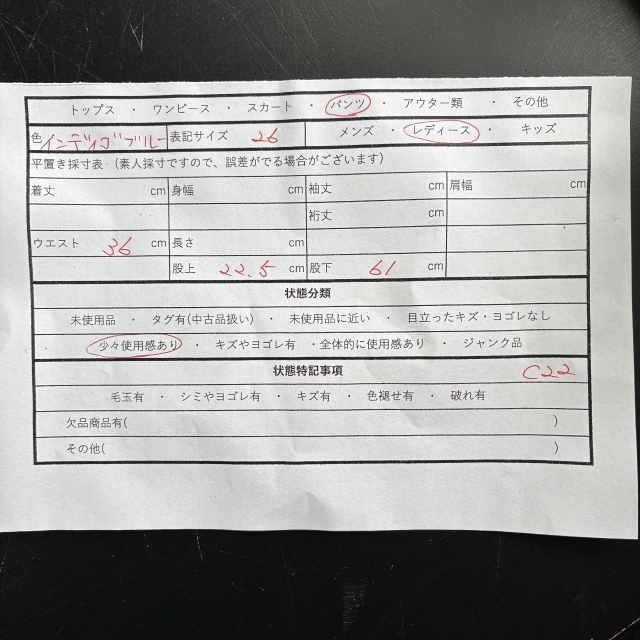 トップス ・ ワンピース ・ スカート ・ パンツ ・ アウター類 ・ その他
色 インディゴブルー 表記サイズ 26 メンズ ・ レディース ・ キッズ
平置き採寸表 (素人採寸ですので、誤差がでる場合がございます)
着丈 cm 身幅 cm 袖丈 cm 肩幅 cm
裄丈 cm
ウエスト 36 cm 長さ cm
股上 22.5 cm 股下 61 cm
状態分類
未使用品 ・ タグ有(中古品扱い) ・ 未使用品に近い ・ 目立ったキズ・ヨゴレなし
少々使用感あり ・ キズやヨゴレ有 ・全体的に使用感あり ・ ジャンク品
状態特記事項 C22
毛玉有 ・ シミやヨゴレ有 ・ キズ有 ・ 色褪せ有 ・ 破れ有
欠品商品有( )
その他( )